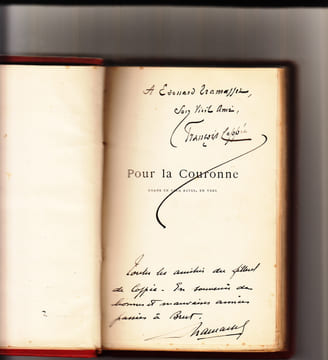 A Edouard Tramasset,
Son vieil ami,
François Coppée
Pour la Couronne
DRAME EN CINQ ACTES, EN VERS
Toutes les amitiés du filleul
de Coppée. En souvenir de
bonnes et mauvaises années
passées à Brest.